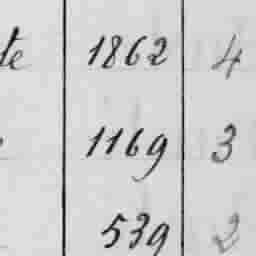 te 1862 4
1169 3
539 2